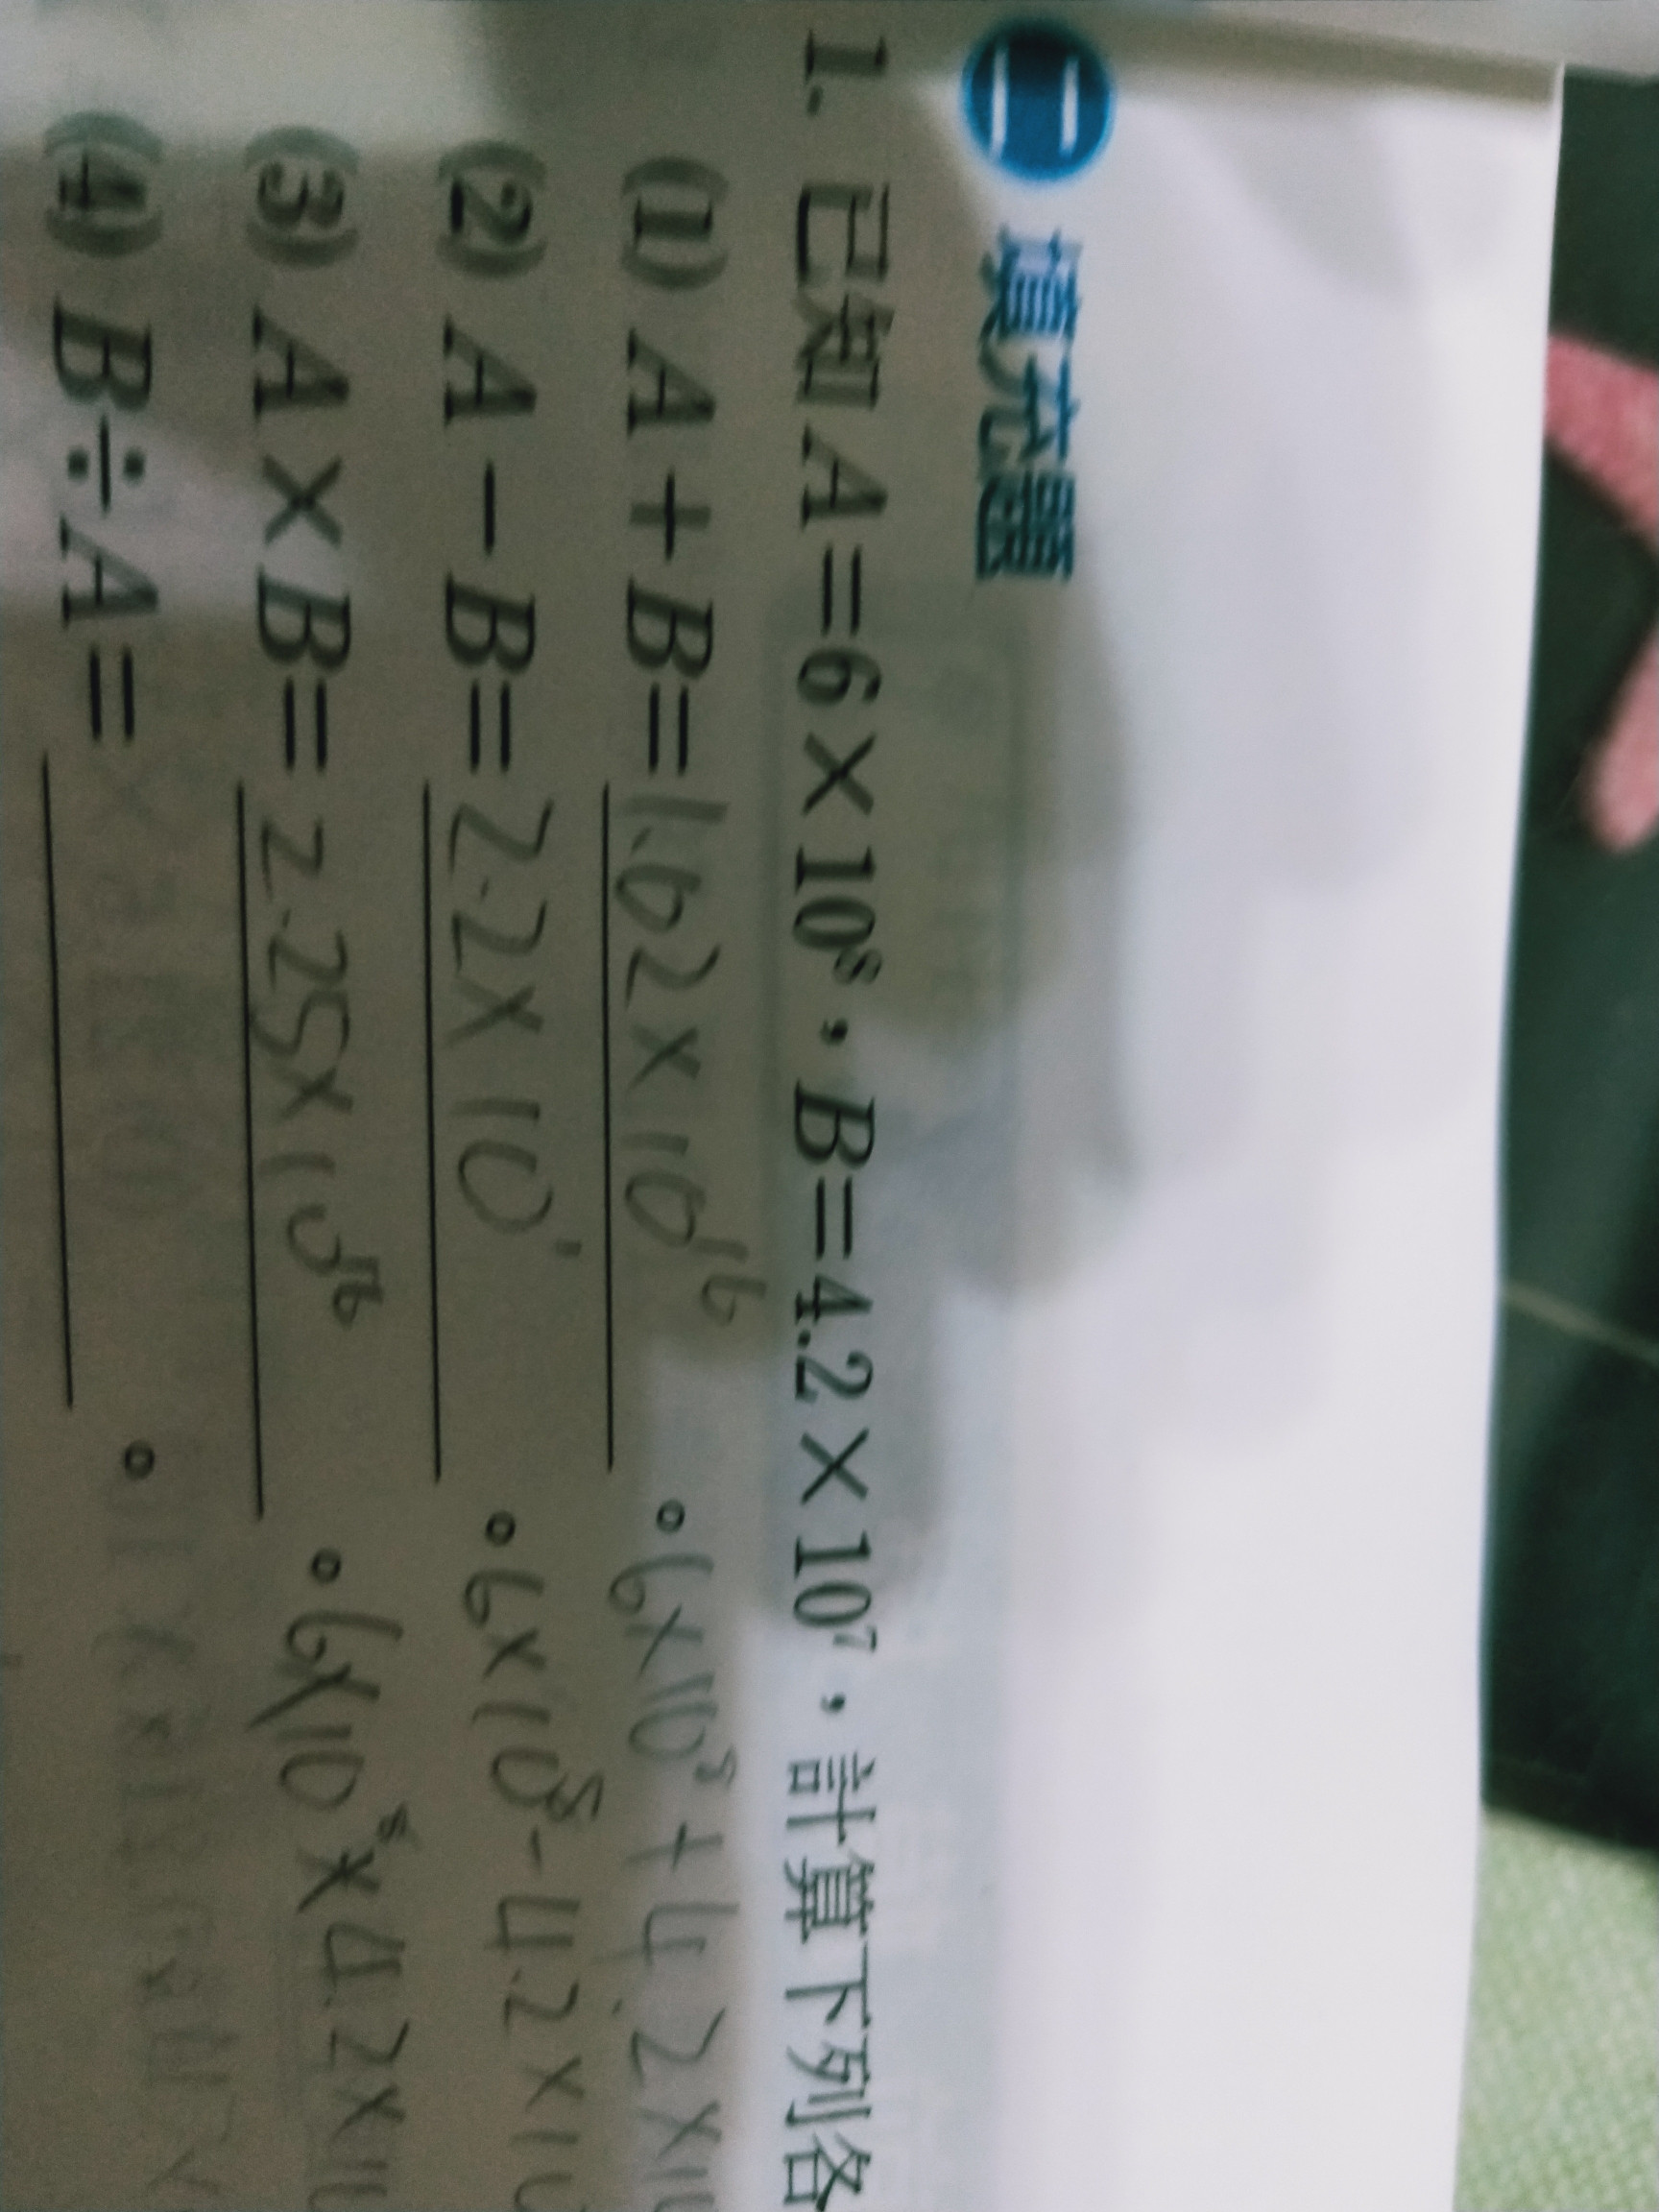 二 填充題
1. 已知 A=6×10⁸,B=4.2×10⁷,計算下列各
(1) A+B=1.62×10¹⁶。6×10⁸+4.2×10
(2) A-B=2.2×10¹。6×10⁸-4.2×10
(3) A×B=2.25×10¹⁶。6×10⁸×4.2×10
(4) B÷A=。